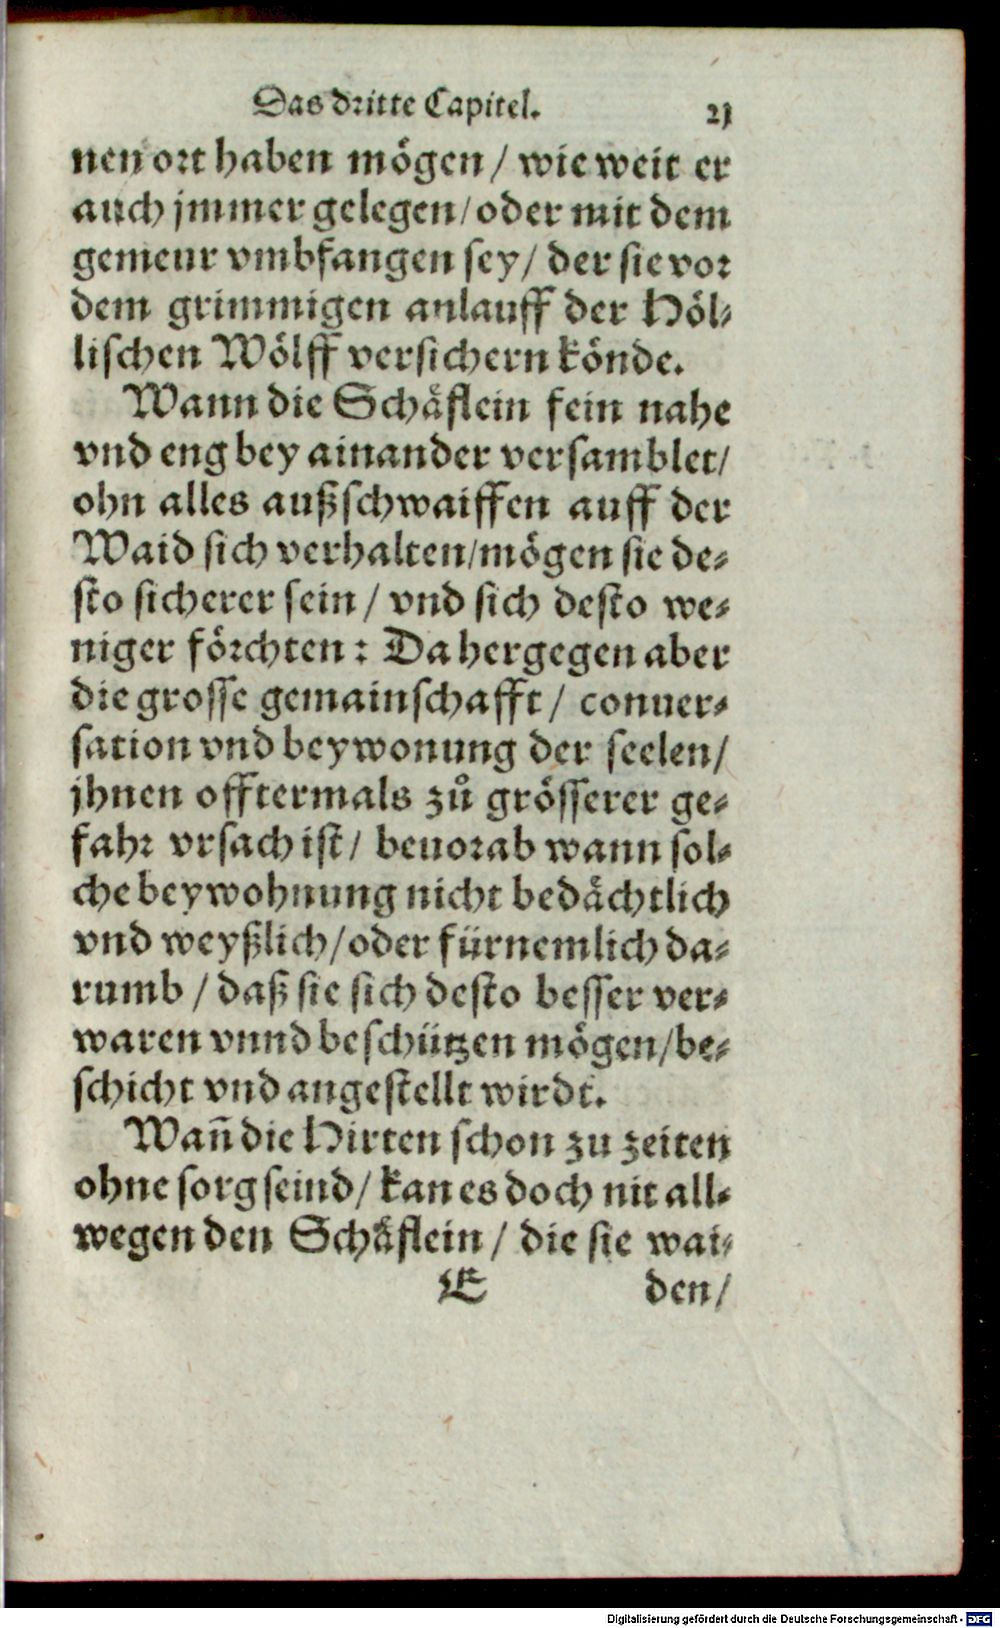 Das dritte Capitel. 21
nen ort haben mögen / wie weit er
auch jmmer gelegen / oder mit dem
gemeur vmbfangen sey / der sie vor
dem grimmigen anlauff der Höl-
lischen Wölff versichern könde.
Wann die Schäflein fein nahe
vnd eng bey ainander versamblet /
ohn alles außschwaiffen auff der
Waid sich verhalten / mögen sie de-
sto sicherer sein / vnd sich desto we-
niger förchten : Da hergegen aber
die grosse gemainschafft / conuer-
sation vnd beywonung der seelen /
jhnen offtermals zů grösserer ge-
fahr vrsach ist / beuorab wann sol-
che beywohnung nicht bedächtlich
vnd weyßlich / oder fürnemlich da-
rumb / daß sie sich desto besser ver-
waren vnnd beschützen mögen / be-
schicht vnd angestellt wirdt.
Wañ die Hirten schon zu zeiten
ohne sorg seind / kan es doch nit all-
wegen den Schäflein / die sie wai-
E den /
Digitalisierung gefördert durch die Deutsche Forschungsgemeinschaft - DFG